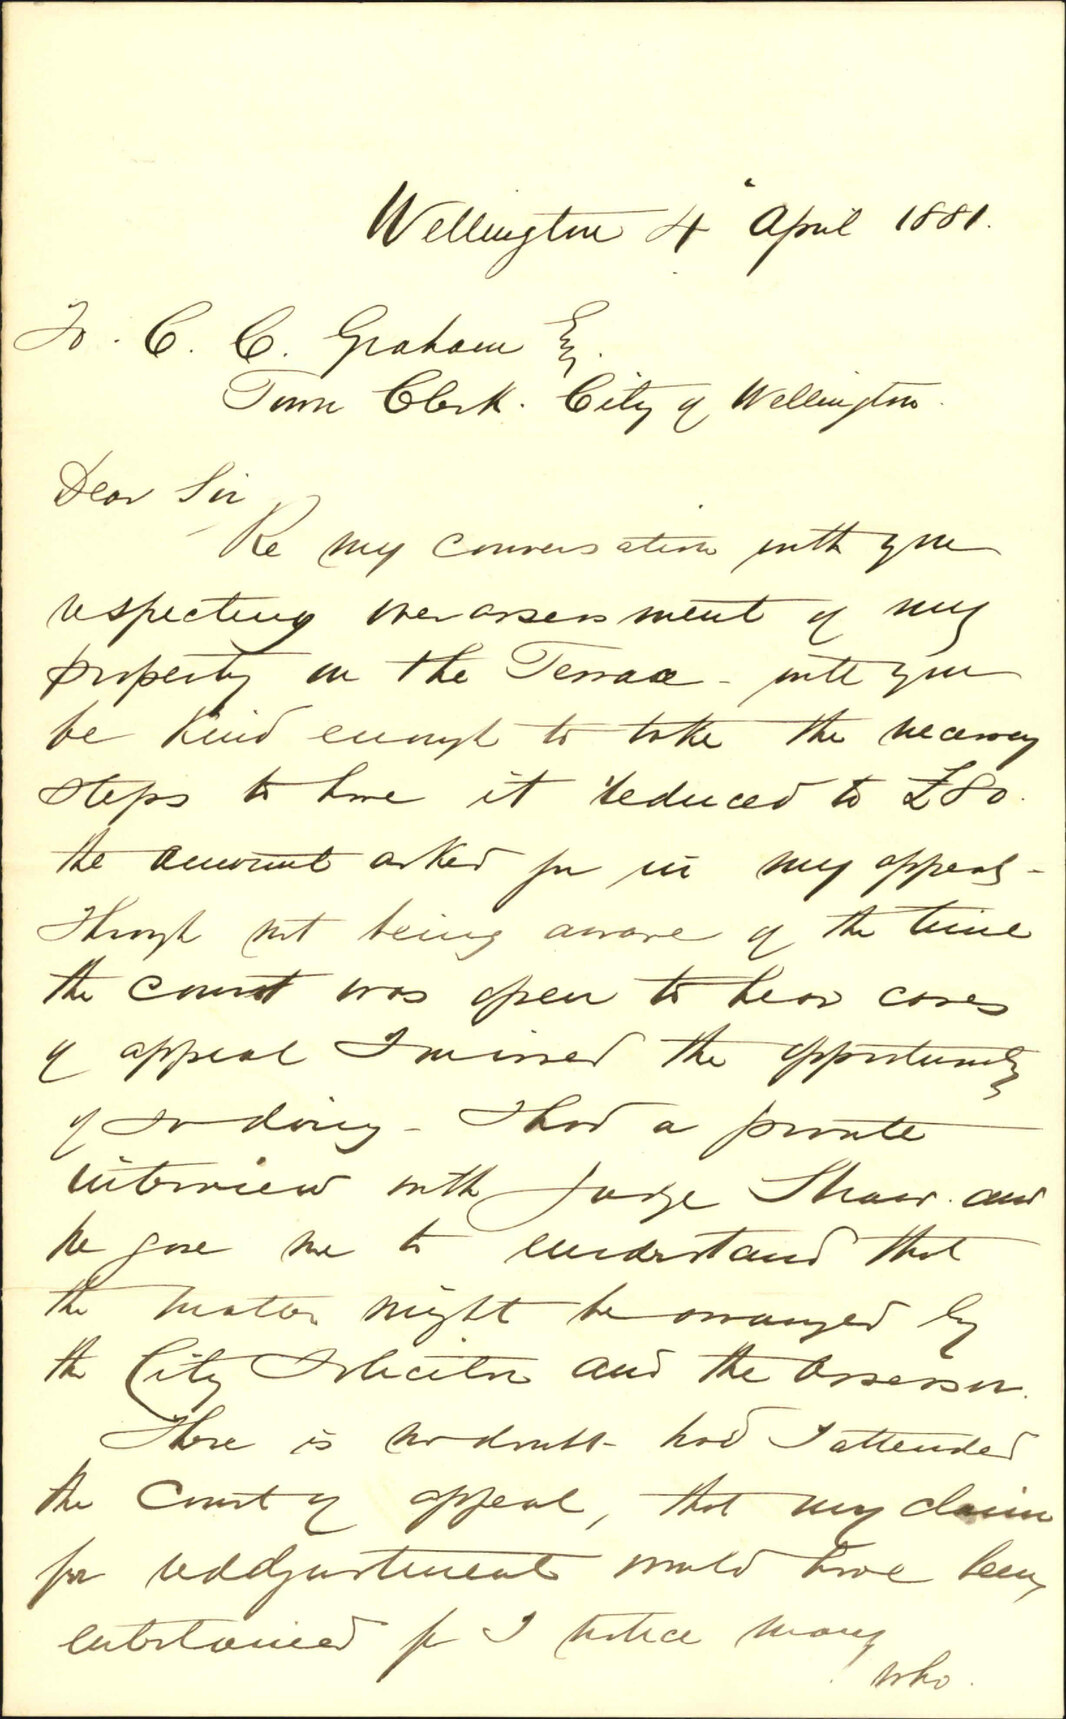 Wellington 4" April 1881.
To. C. C. Graham Esq.
Town Clerk. City of Wellington.
Dear Sir
Re my conversation with you
respecting over assessment of my
property on the Terrace - will you
be kind enough to take the necessary
steps to have it reduced to £80.
the amount asked for in my appeal -
Through not being aware of the time
the court was open to hear cases
of appeal I missed the opportunity
of so doing - I had a private
interview with Judge Shaw. and
he gave me to understand that
the matter might be arranged by
the City Solicitor and the Assessor.
There is no doubt - had I attended
the Court of appeal, that my claim
for readjustment would have been
entertained for I notice many
who.